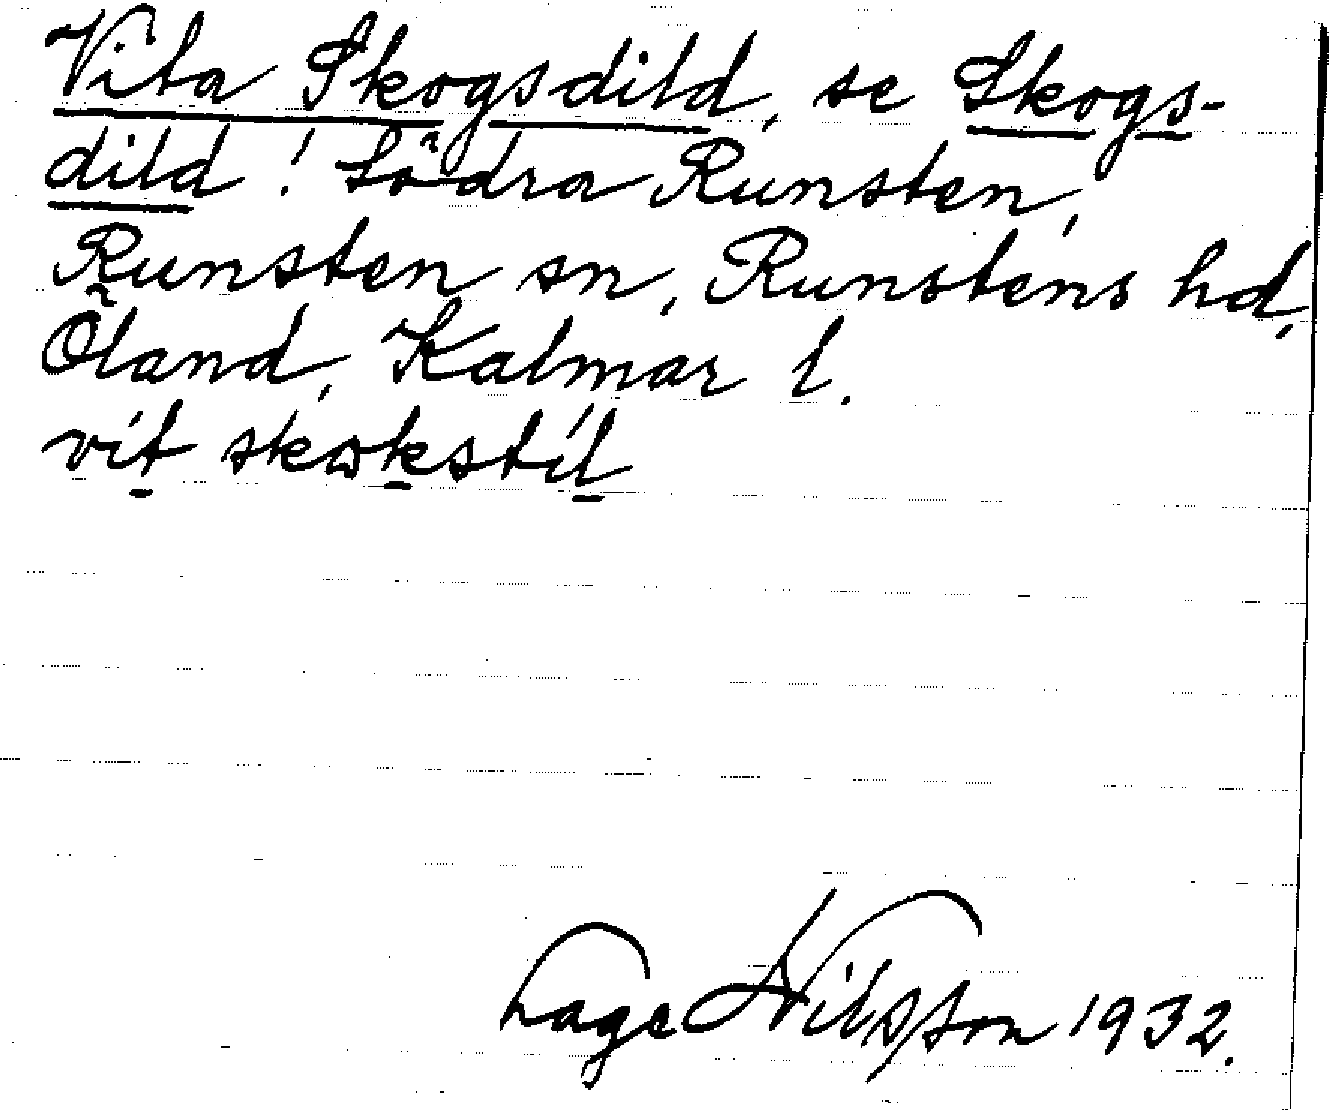 Vita Skogsdild, se Skogs-
dild! Södra Runsten,
Runsten sn, Runstens hd,
Öland, Kalmar l.
vit skɷkstil
Lage Nilsson 1932.